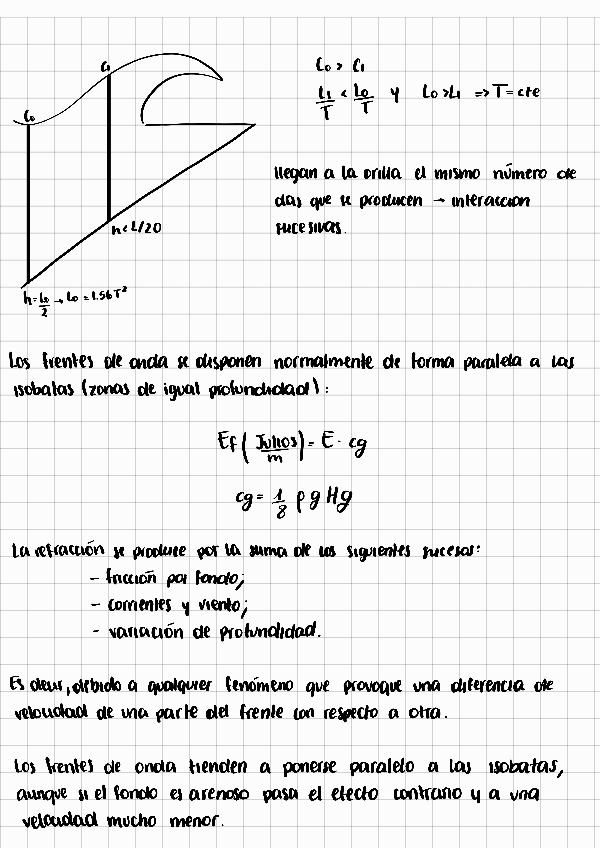 C₁
C₀
C₀ > C₁
L₁/T < L₀/T y L₀>L₁ => T=cte
llegan a la orilla el mismo número de
olas que se producen → interaccion
sucesivas.
h<L/20
h=L₀/2 → L₀ = 1.56T²
Los frentes de onda se disponen normalmente de forma paralela a las
isobatas (zonas de igual profundidad):
Ef (Julios/m) = E · cg
cg = 1/8 ρ g Hg
La refracción se produce por la suma de los siguientes sucesos:
- fricción por fondo;
- corrientes y viento;
- variación de profundidad.
Es decir, debido a qualquier fenómeno que provoque una diferencia de
velocidad de una parte del frente con respecto a otra.
Los frentes de onda tienden a ponerse paralelo a las isobatas,
aunque si el fondo es arenoso pasa el efecto contrario y a una
velocidad mucho menor.